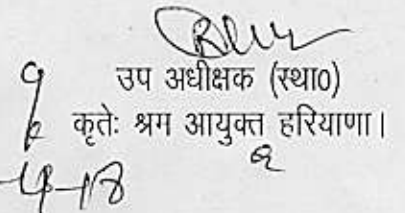 उप अधीक्षक (स्था0)
कृतेः श्रम आयुक्त हरियाणा।